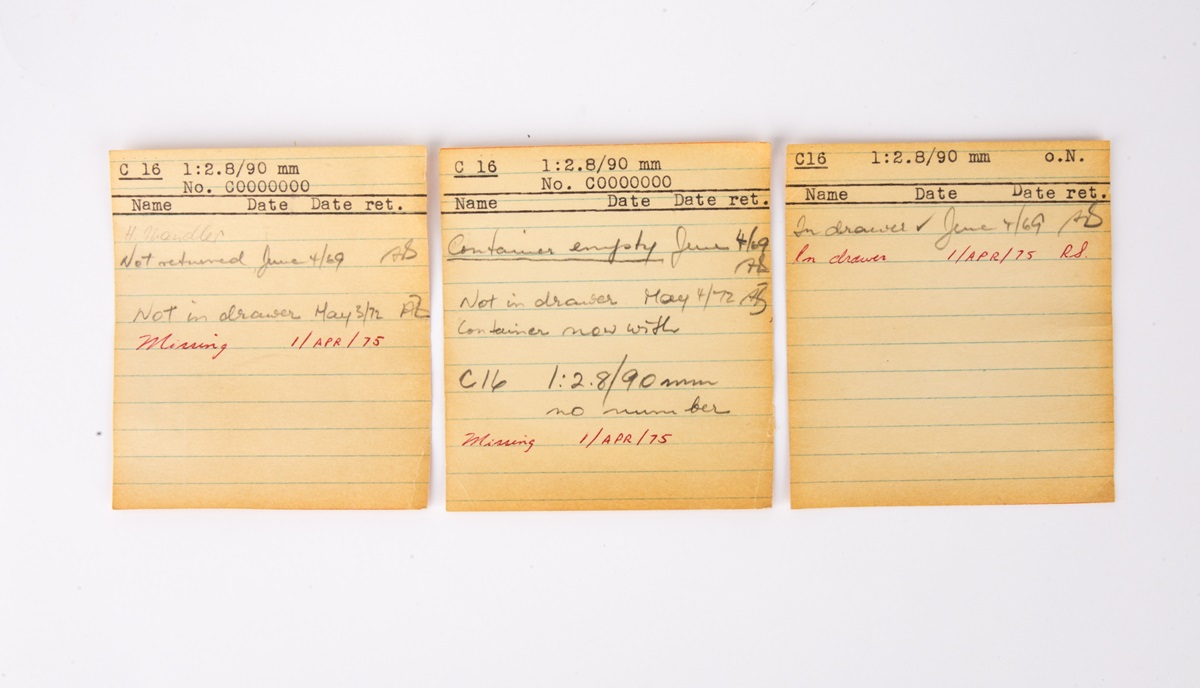 C 16 1:2.8/90 mm
No. C0000000
Name Date Date ret.
H. Mandler
Not returned June 4/69 AS
Not in drawer May 3/72
Missing 1/APR/75
C 16 1:2.8/90 mm
No. C0000000
Name Date Date ret.
Container empty June 4/69
AS
Not in drawer May 4/72 AS
Container now with
C16 1:2.8/90mm
no number
Missing 1/APR/75
C16 1:2.8/90 mm o.N.
Name Date Date ret.
In drawer ✓ June 4/69 AS
In drawer 1/APR/75 RS.